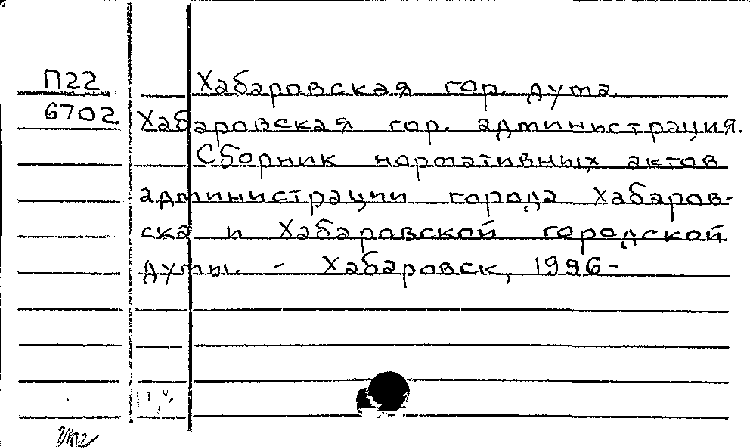 П22 Хабаровская гор. дума.
6702 Хабаровская гор. администрация.
Сборник нормативных актов
администрации города Хабаров-
ска и Хабаровской городской
думы. - Хабаровск, 1996-